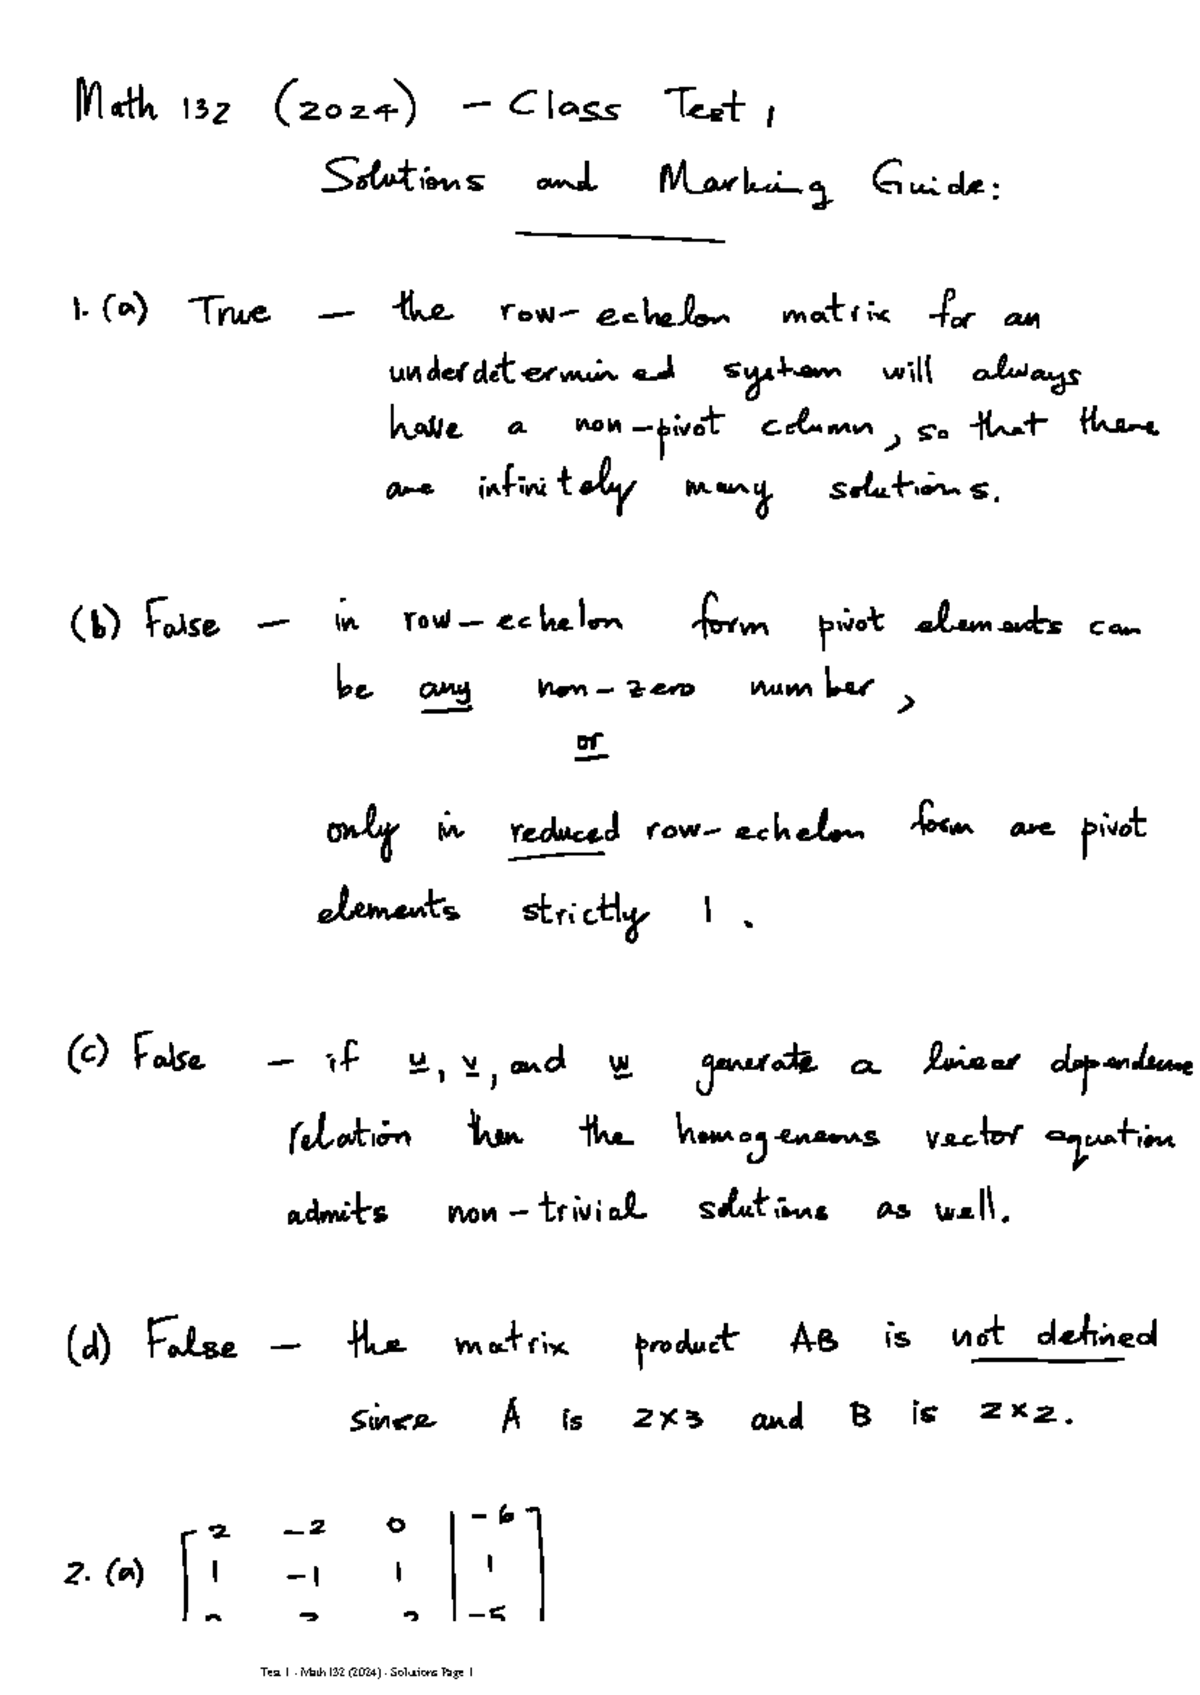 Math 132 (2024) - Class Test 1
Solutions and Marking Guide:
1. (a) True — the row-echelon matrix for an
underdetermined system will always
have a non-pivot column, so that there
are infinitely many solutions.
(b) False — in row-echelon form pivot elements can
be any non-zero number,
or
only in reduced row-echelon form are pivot
elements strictly 1.
(c) False — if u, v, and w generate a linear dependence
relation then the homogeneous vector equation
admits non-trivial solutions as well.
(d) False — the matrix product AB is not defined
since A is 2×3 and B is 2×2.
2 -2 0 | -6
2. (a) 1 -1 1 | 1
-5
Test 1 - Math 132 (2024) - Solutions Page 1